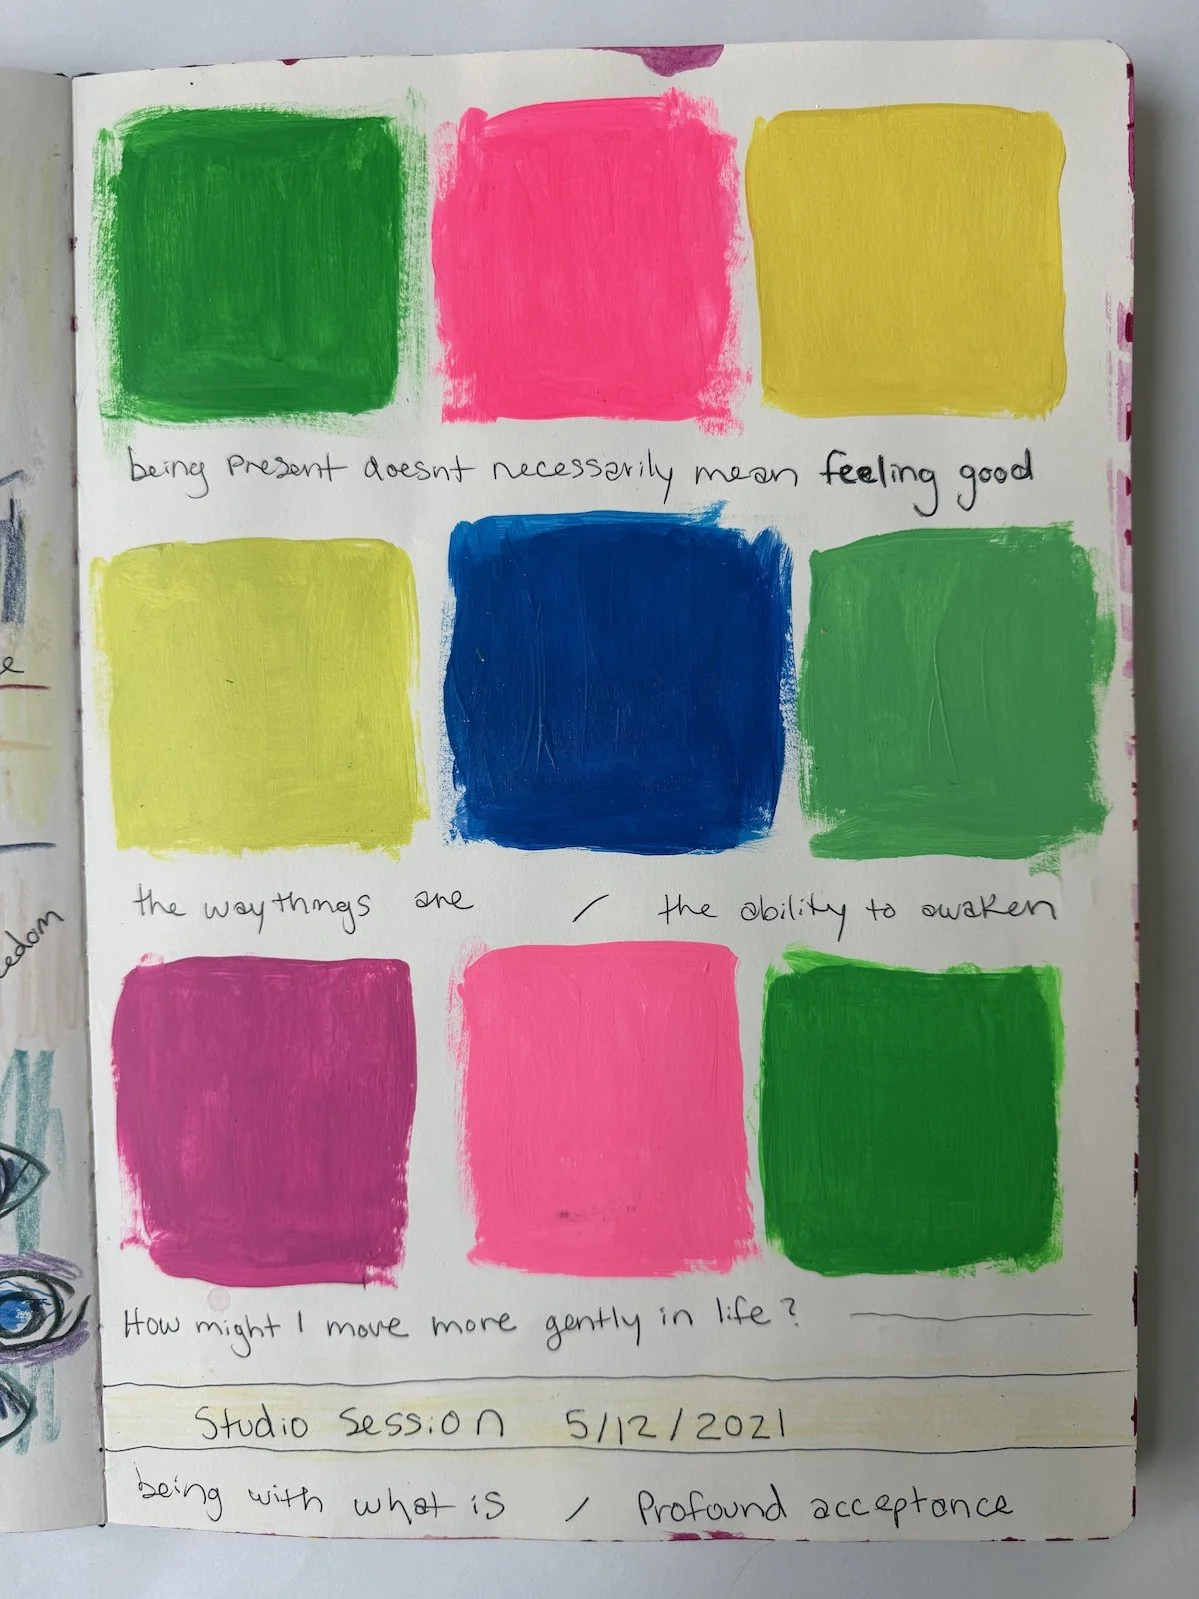 being present doesnt necessarily mean feeling good
the way things are / the ability to awaken
How might I move more gently in life?
Studio Session 5/12/2021
being with what is / Profound acceptance